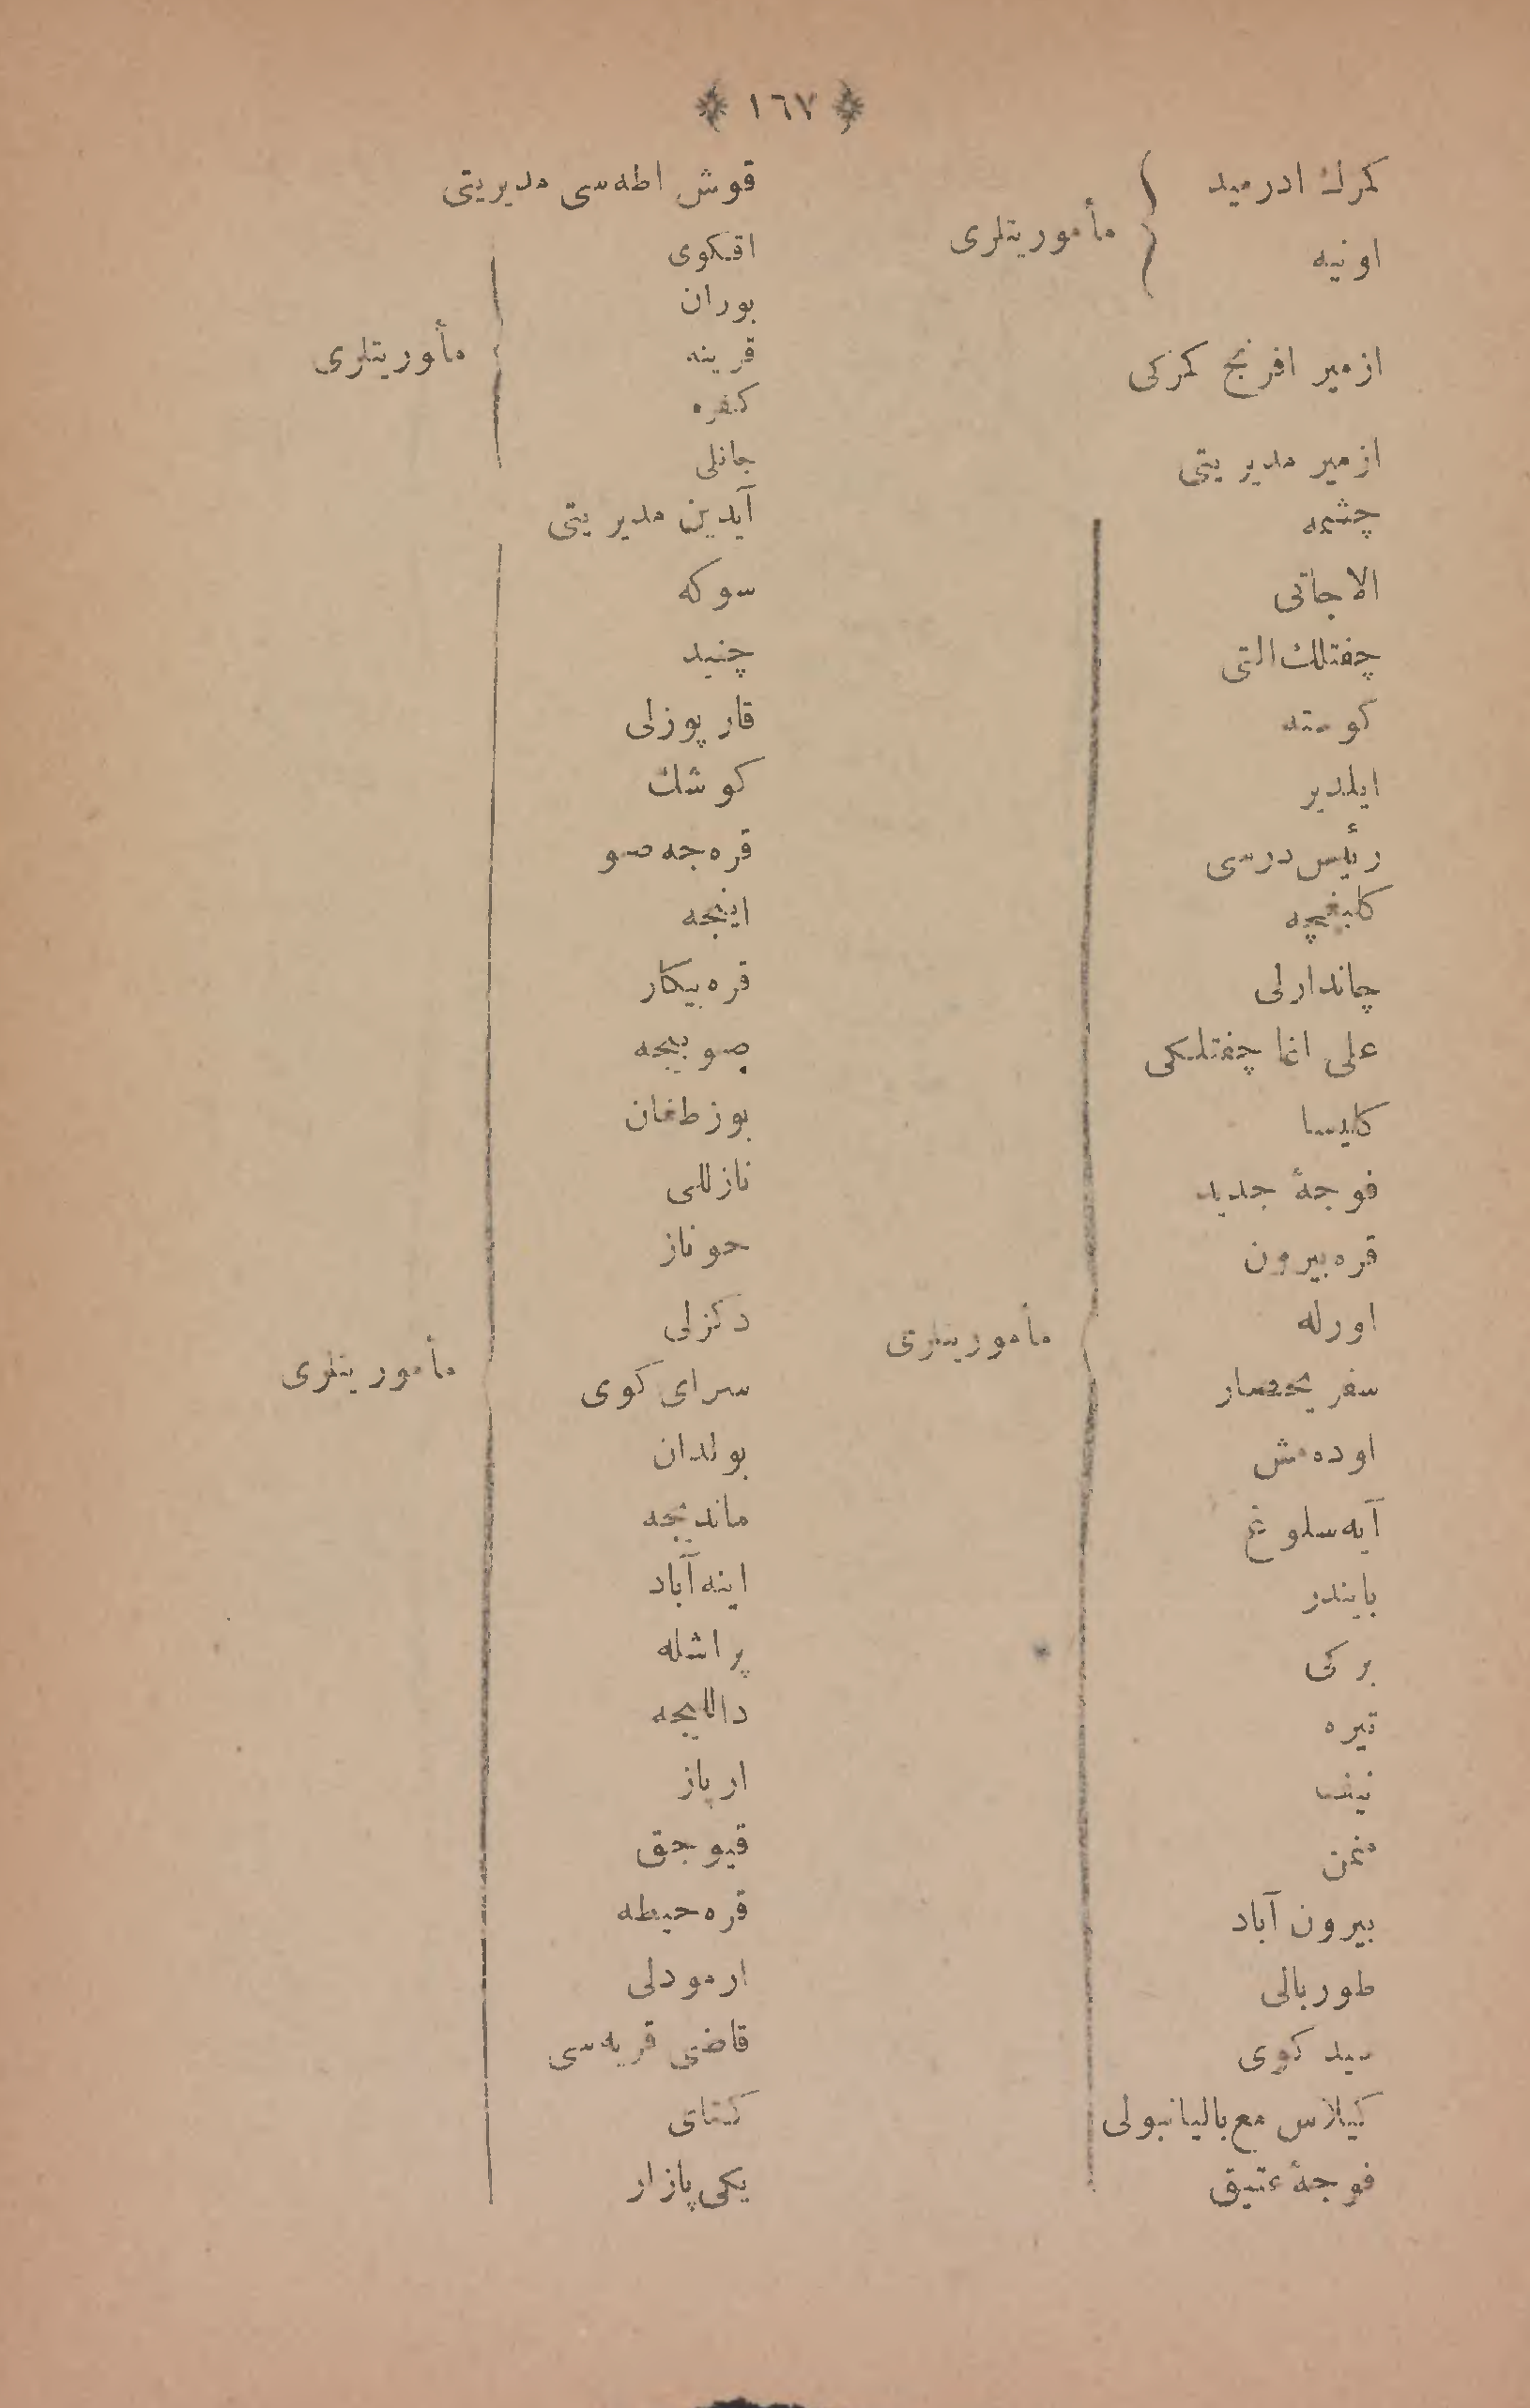 ١٦٧
كمرك ادرميد
اونيه
مأموريتلرى
ازمير افرنج كمركى
ازمير مديريتى
چشمه
الاجاتى
چفتلك التى
كومته
ايلدير
رئيس درسى
كلبغچه
چاندارلى
على اغا چفتلكى
كليسا
فوجۀ جديد
قره بيرون
اورله
سفريحصار
اوده مش
آيه سلوغ
بايندر
بركى
تيره
نيف
منمن
بيرون آباد
طوربالى
سيدكوى
كيلاس مع باليانبولى
فوجۀ عتيق
مأموريتلرى
قوش اطه سى مديريتى
اقكوى
بوران
قرينه
كفره
جانلى
مأموريتلرى
آيدين مديريتى
سوكه
چنيد
قارپوزلى
كوشك
قره جه صو
اينجه
قره بيكار
صوبيجه
بوزطغان
نازللى
حوناز
دكزلى
سراى كوى
بولدان
مانديجه
اينه آباد
پراشله
دالليجه
ارپاز
قيوجق
قره حيطه
ارمودلى
قاضى قريه سى
كتناى
يكى پازار
مأموريتلرى